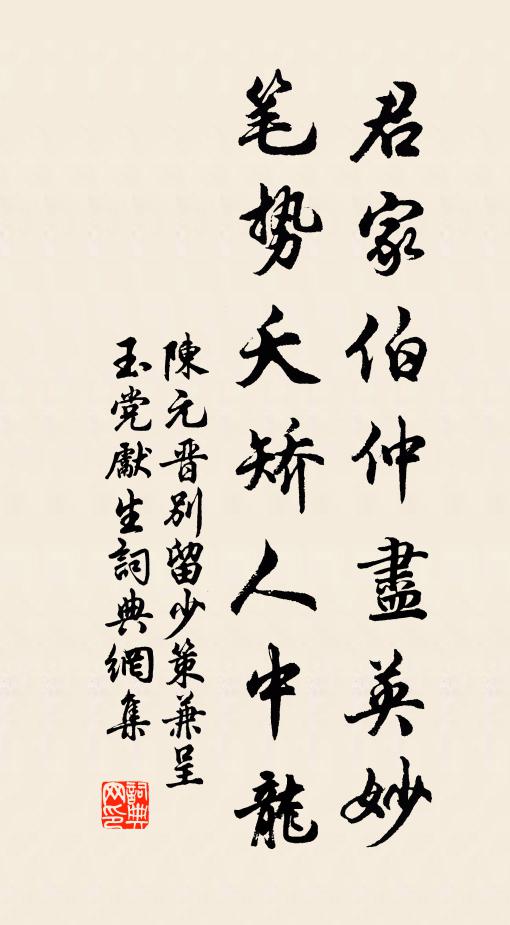 君家伯仲盡英妙
笔势夭矫人中龍
陳元晋別留少策兼呈
玉党獻生詞典網集
詞典网印